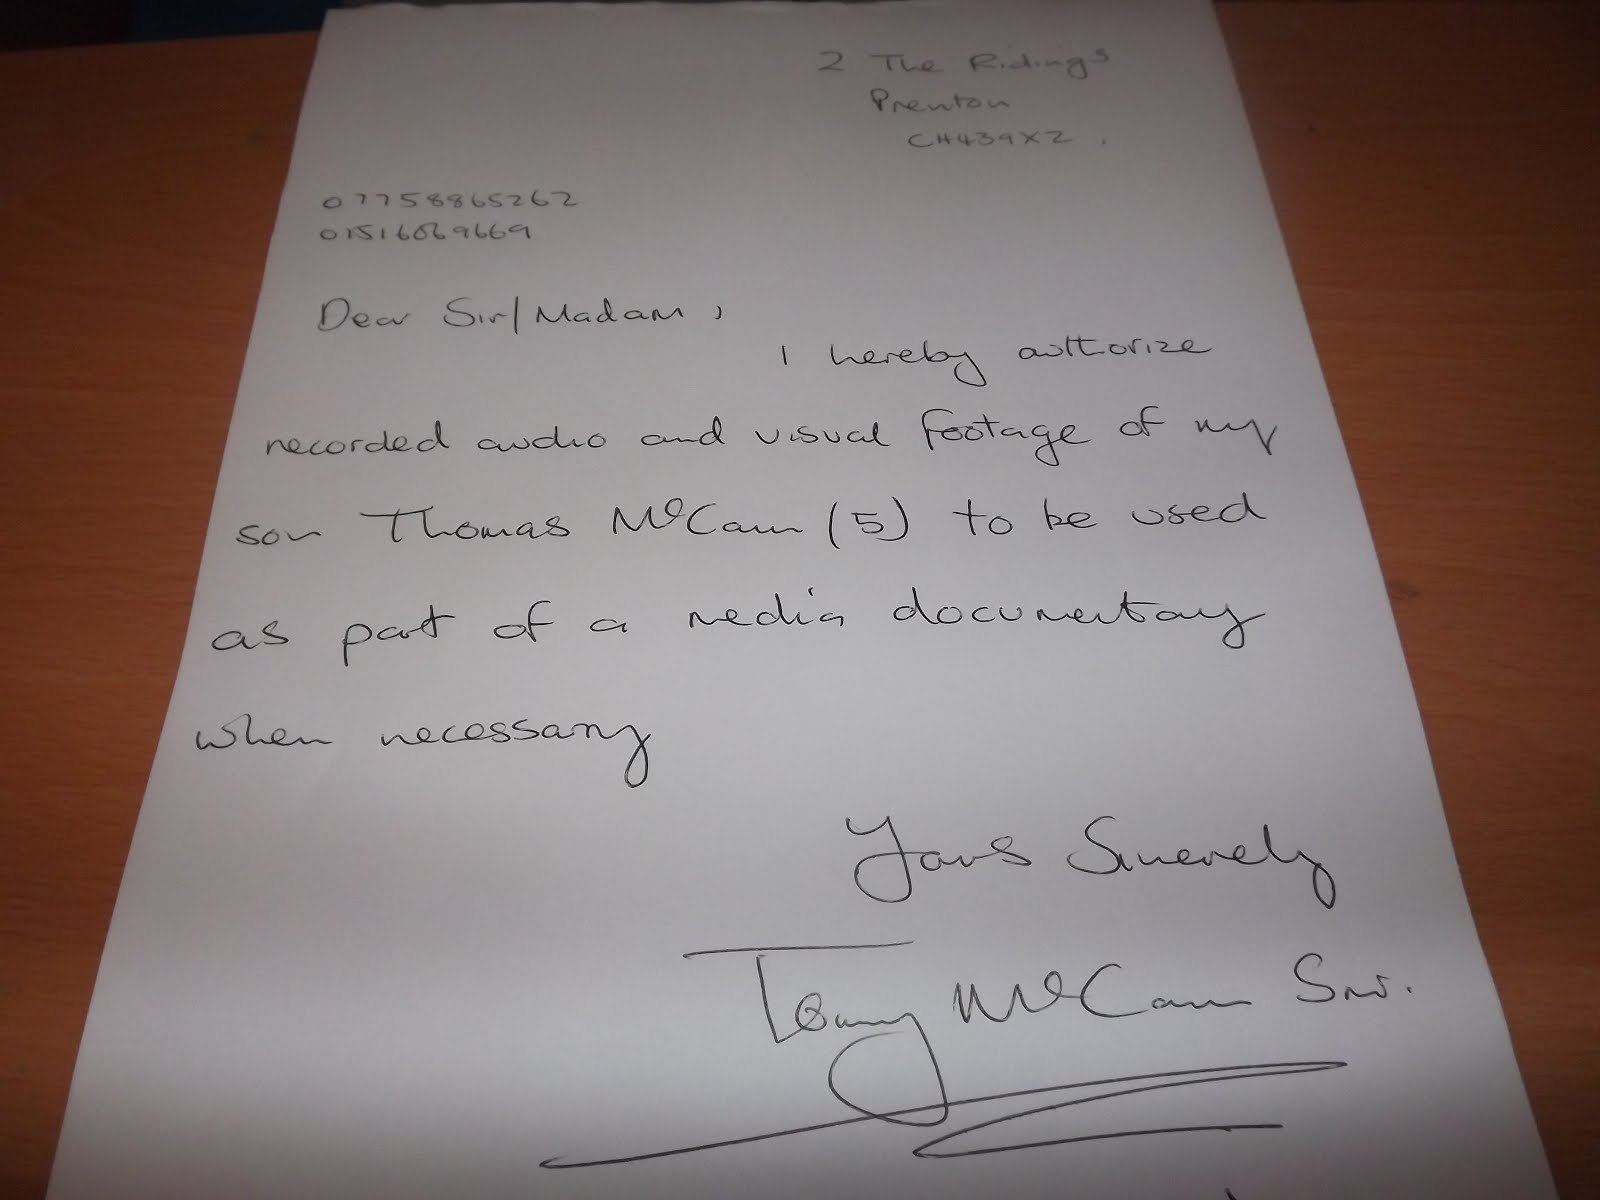 2 The Ridings
Prenton
CH439XZ.
07758865262
01516069669
Dear Sir/Madam,
I hereby authorize
recorded audio and visual footage of my
son Thomas McCann (5) to be used
as part of a media documentary
when necessary
Yours Sincerely
Tommy McCann Snr.